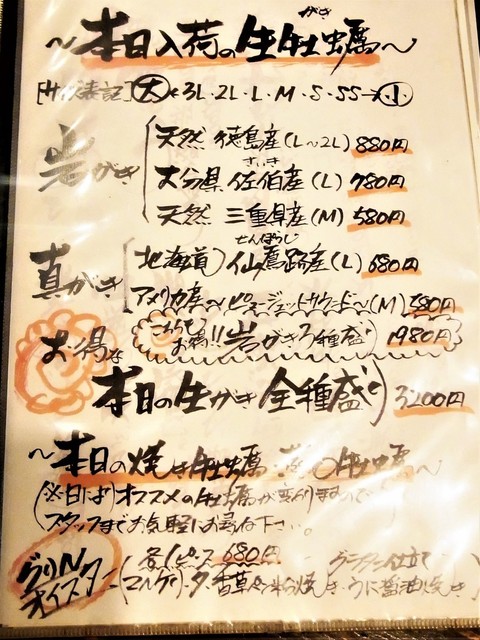 がき
〜本日入荷の生牡蠣〜
[サイズ表記] 大←3L・2L・L・M・S・SS→小
岩がき
天然 徳島産(L〜2L) 880円
さいき
大分県 佐伯産(L) 780円
天然 三重県産(M) 580円
真がき
せんぽうじ
北海道 仙鳳趾産(L) 680円
アメリカ産〜ピュージェットサウンド〜(M)
お得な
こちらもお得!! 岩がき3種盛 1980円
本日の生がき全種盛り 3200円
〜本日の焼き牡蠣・蒸し牡蠣〜
(※日によりオススメの牡蠣が変わりますので
スタッフまでお気軽にお尋ね下さい。
グリル
オイスター
各1ピース 680円 グラタン仕立て
香草パン粉焼き・うに醤油焼き